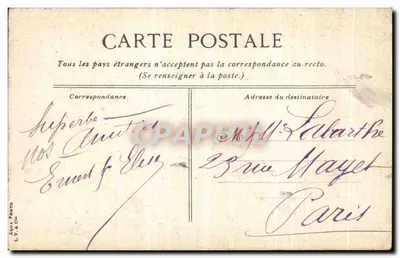 CARTE POSTALE
Tous les pays étrangers n'acceptent pas la correspondance au recto.
(Se renseigner à la poste.)
Correspondance
Adresse du destinataire
Superbe
nos Amitiés
Ernest &
M. & Me Labarthe
23 rue Mayet
Paris
CPARAMA